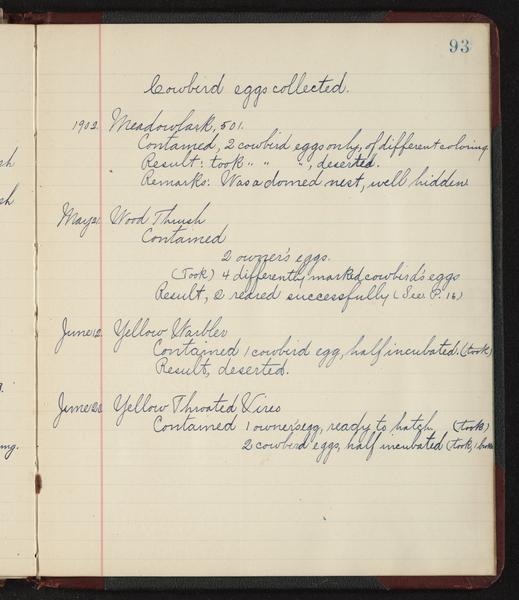 93
Cowbird eggs collected.
1902. Meadowlark, 501.
Contained, 2 cowbird eggs only, of different coloring
Result: took " " " , deserted.
Remarks: Was a domed nest, well hidden
May 21. Wood Thrush
Contained
2 owner's eggs.
(Took) 4 differently marked cowbird's eggs
Result, 2 reared successfully (See P. 16)
June 12. Yellow Warbler
Contained 1 cowbird egg, half incubated. (took)
Result, deserted.
June 20 Yellow Throated Vireo
Contained 1 owner's egg, ready to hatch (took)
2 cowbird eggs, half incubated (took, 1